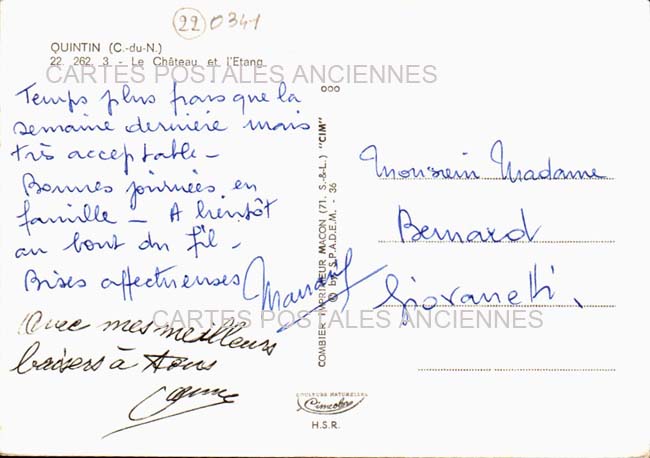 22 0341
QUINTIN (C.-du-N.)
22. 262. 3 - Le Château et l'Etang
CARTES POSTALES ANCIENNES
Temps plus frais que la
semaine dernière mais
très acceptable -
Bonnes journées en
famille - A bientôt
au bout du fil -
Bises affectueuses
avec mes meilleurs
baisers à tous
COMBIER IMPRIMEUR MACON (71. S.-&-L.) "CIM"
© by S.P.A.D.E.M. - 36
Monsieur Madame
Bernard
Giovanetti.
CARTES POSTALES ANCIENNES
COULEURS NATURELLES
Cimcolor
H.S.R.